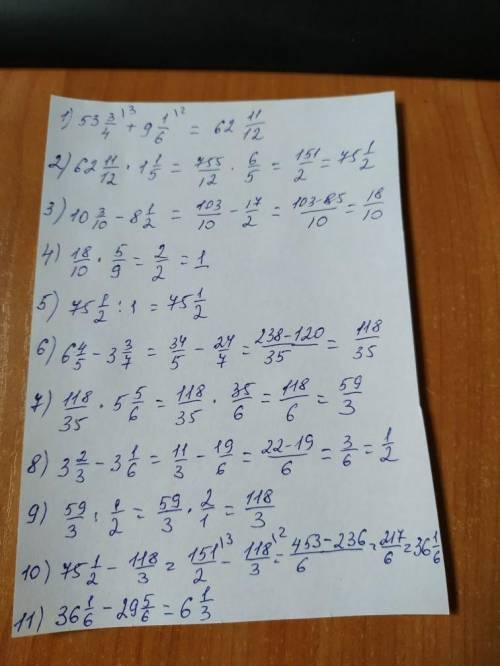 1) 53 3/4 \3 + 9 1/6 \2 = 62 11/12
2) 62 11/12 · 1 1/5 = 755/12 · 6/5 = 151/2 = 75 1/2
3) 10 3/10 - 8 1/2 = 103/10 - 17/2 = 103-85/10 = 18/10
4) 18/10 · 5/9 = 2/2 = 1
5) 75 1/2 : 1 = 75 1/2
6) 6 4/5 - 3 3/7 = 34/5 - 24/7 = 238-120/35 = 118/35
7) 118/35 · 5 5/6 = 118/35 · 35/6 = 118/6 = 59/3
8) 3 2/3 - 3 1/6 = 11/3 - 19/6 = 22-19/6 = 3/6 = 1/2
9) 59/3 : 1/2 = 59/3 · 2/1 = 118/3
10) 75 1/2 - 118/3 = 151/2 \3 - 118/3 \2 = 453-236/6 = 217/6 = 36 1/6
11) 36 1/6 - 29 5/6 = 6 1/3